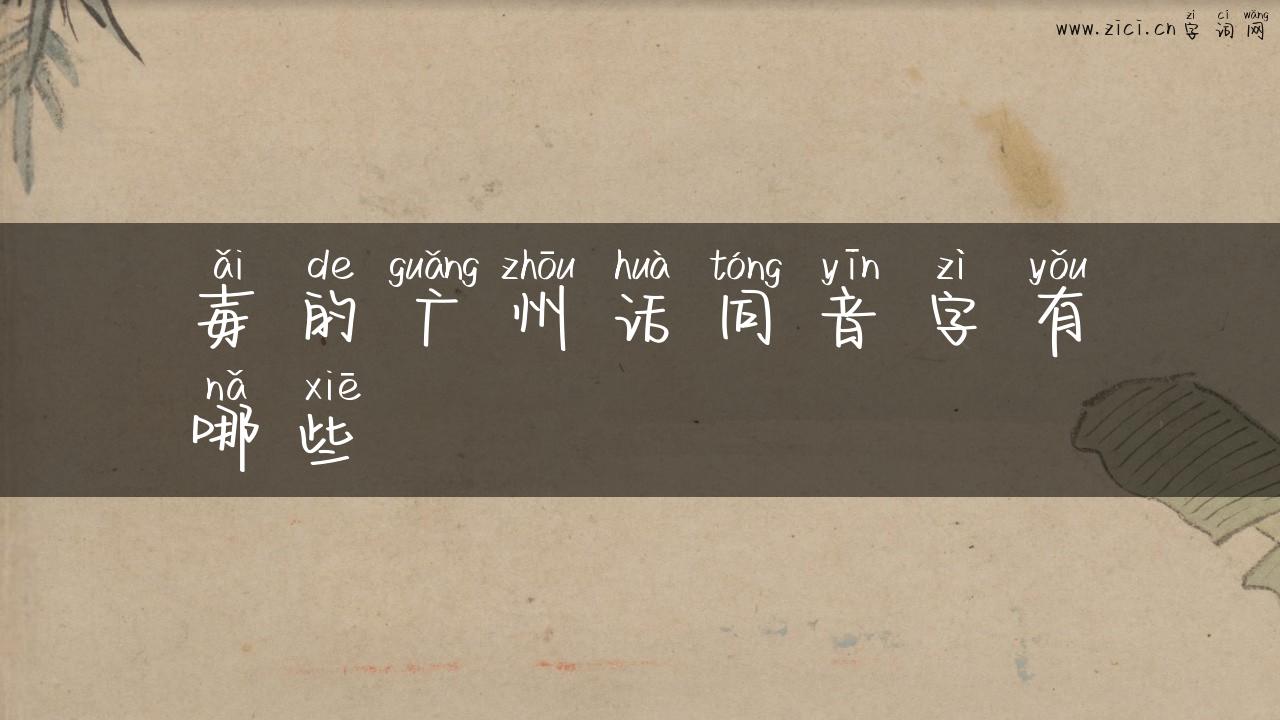 zì cí wǎng
www.zici.cn 字词网
ǎi de guǎng zhōu huà tóng yīn zì yǒu
毐的广州话同音字有
nǎ xiē
哪些